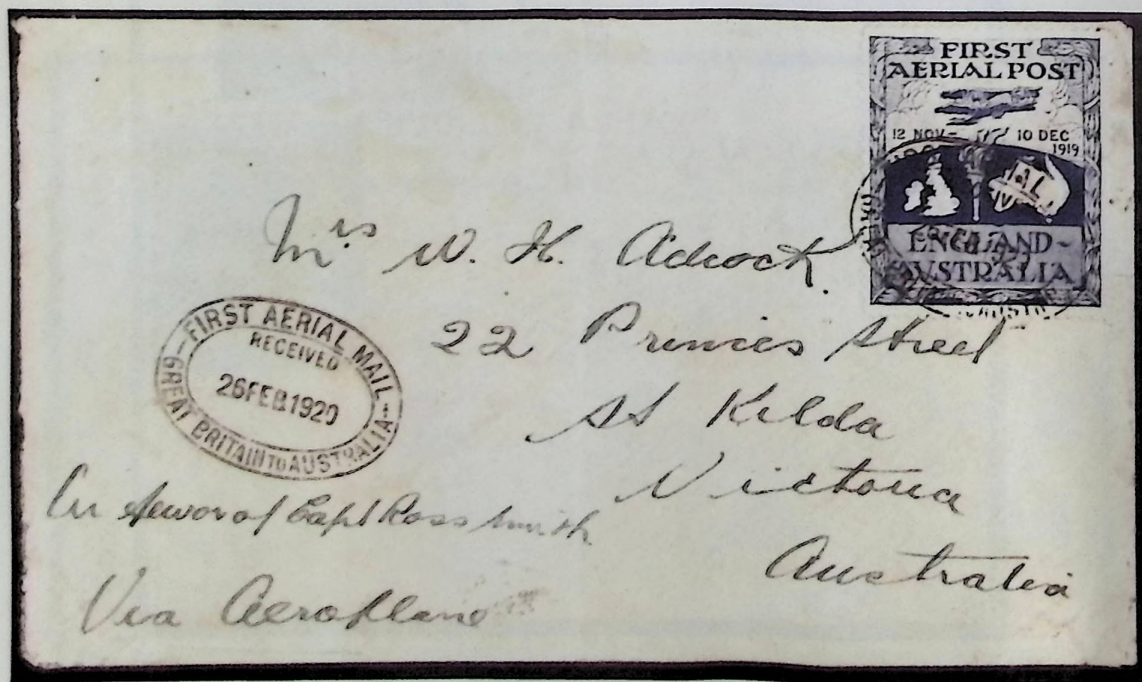 FIRST
AERIAL POST
12 NOV - 10 DEC
1919
ENGLAND-
AUSTRALIA
Mrs W. H. Adcock.
22 Princes Street
St Kilda
Victoria
Australia
FIRST AERIAL MAIL
RECEIVED
26 FEB 1920
GREAT BRITAIN TO AUSTRALIA
Capt Ross Smith
Via Aeroplane